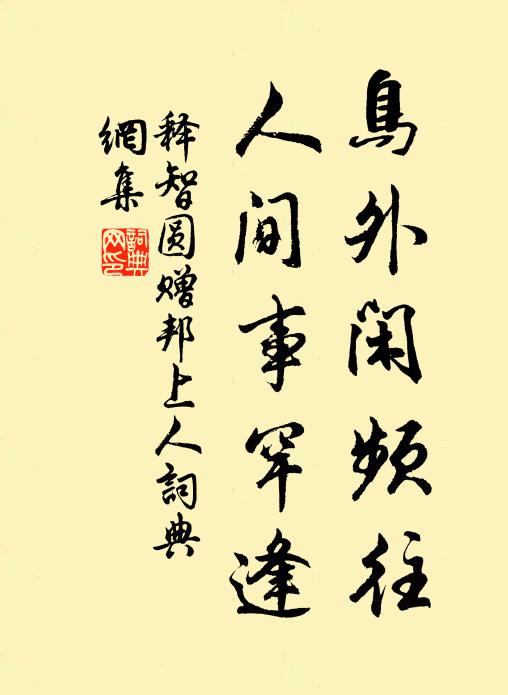 島外閑頻往
人间事罕逢
释智圆赠邦上人詞典
網集
詞典网印